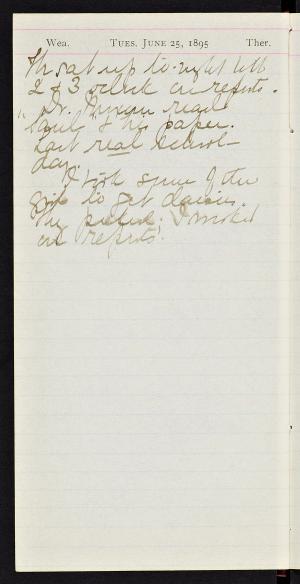 Wea. TUES. JUNE 25, 1895 Ther.
sat up to-night till
2 & 3 o'clock on reports.
Dr. read
the paper.
Last real school-
day.
I took some of the
girls to get daisies.
The I worked
on reports.